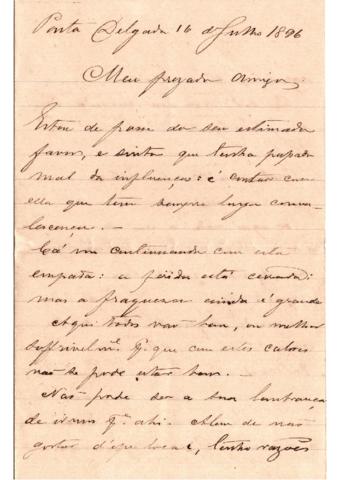 Ponta Delgada 16 de Julho 1896
Meu prezado Amigo
Estou de posse do seu estimado
favor, e sinto que tenha passado
mal da influença: é contar com
ella que tem sempre longa conva-
lescença. —
Cá vou continuando com esta
empada: a ferida está cerrada:
mas a fraqueza ainda é grande
Aqui todos vão bem, ou melhor
soffrivelmte. pr. que com estes calores
não se pode estar bem. —
Não pode ser a sua lembrança
de irmos pa. ahi. Alem de não
gostar d'esse local, tenho razões